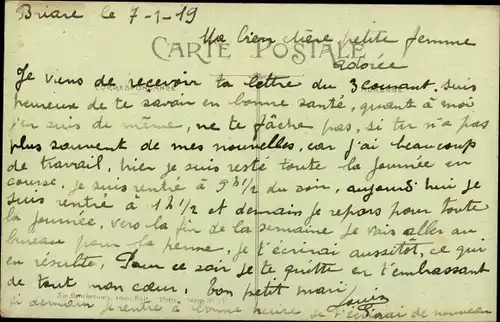 Briare le 7-1-19
Ma bien chère petite femme
CARTE POSTALE
adorée
Je viens de recevoir ta lettre du 3 courant. suis
CORRESPONDANCE
heureuse de te savoir en bonne santé, quant à moi
j'en suis de même, ne te fâche pas, si tu n'a pas
plus souvent de mes nouvelles, car j'ai beaucoup
de travail, hier je suis resté toute la journée en
course, je suis rentré à 9h1/2 du soir, aujourd'hui je
suis rentré à 1h1/2 et demain je repars pour toute
la journée, vers la fin de la semaine je vais aller au
bureau pour la perme, je t'écrirai aussitôt, ce qui
en résulte, Pour ce soir je te quitte en t'embrassant
de tout mon cœur, bon petit mari
Louis
si demain je rentre à bonne heure je t'écrirai de nouveau